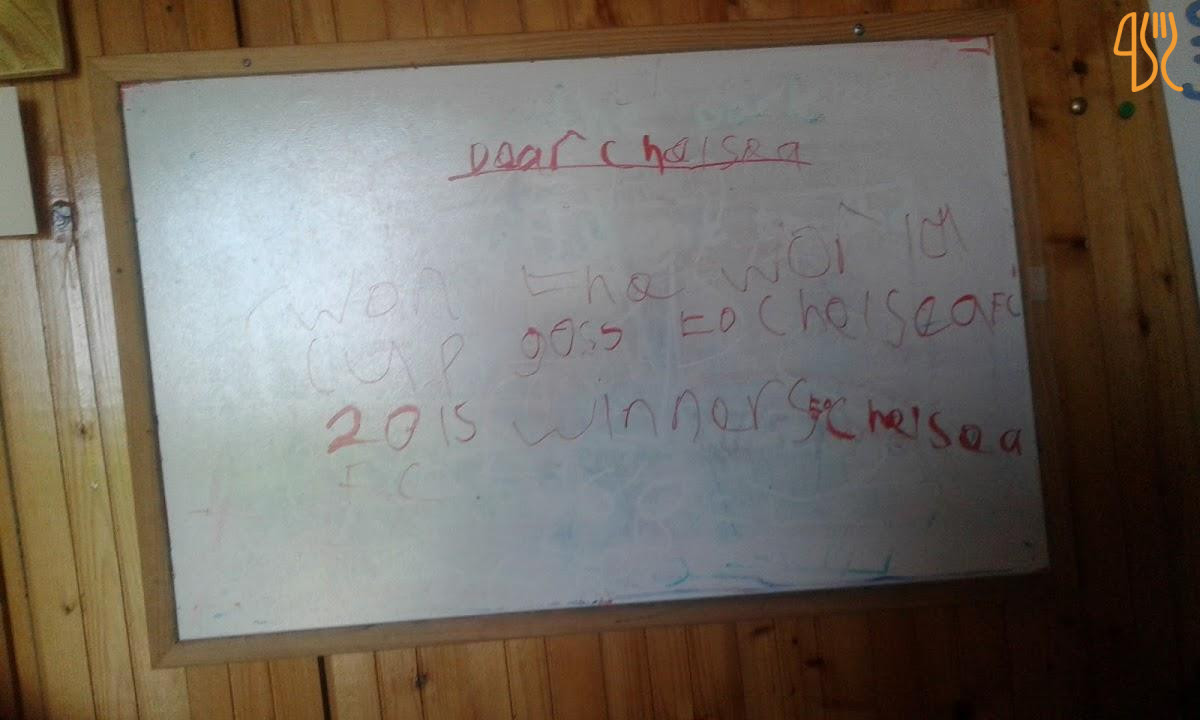 Dear chelsea
won the world
cup goss to chelsea FC
2015 winners FC chelsea
FC